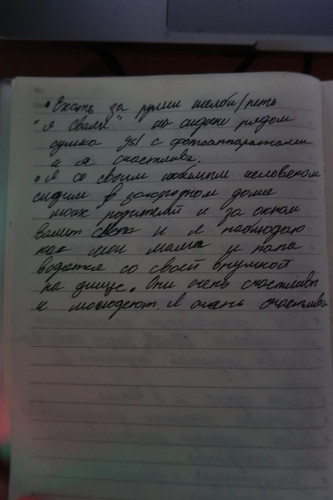 • Ехать за рулём шелби/петь
"я свалил" на сиденье рядом
сумка ysl с фотоаппаратами
и я счастлива.
• я со своим любимым человеком
сидим в загородном доме
моих родителей и за окном
валит снег и я наблюдаю
как мои мама и папа
возятся со своей внучкой
на улице. Они очень счастливы
и молодеют. Я очень счастлива